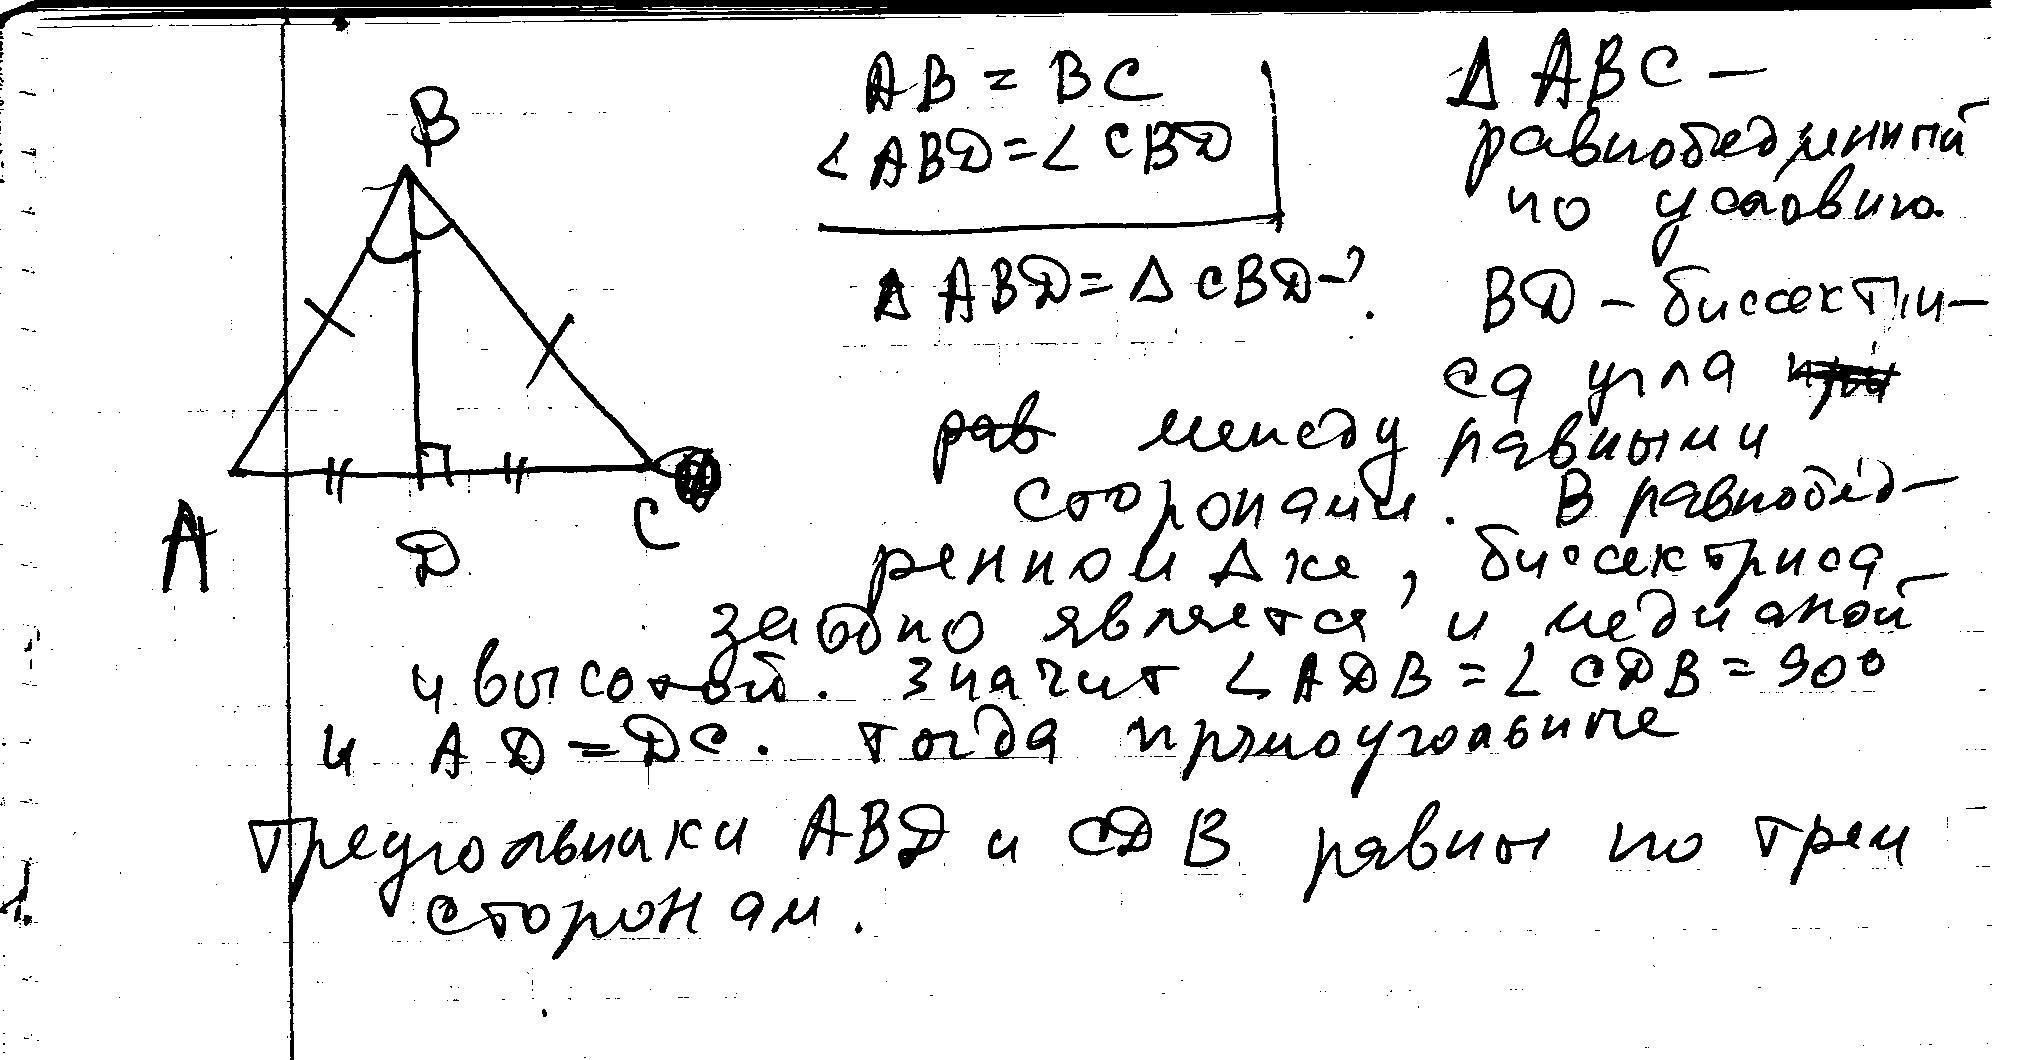 B
A
D
C
AB = BC
∠ABD = ∠CBD
Δ ABD = Δ CBD - ?
Δ ABC –
равнобедренный
по условию.
BD – биссектри-
са угла
рав между равными
сторонами. В равнобед-
ренном Δ же, биссектриса
является и медианой
и высотой. Значит ∠ADB = ∠CDB = 90°
и AD = DC. Тогда прямоугольные
треугольники ABD и CDB равны по трем
сторонам.